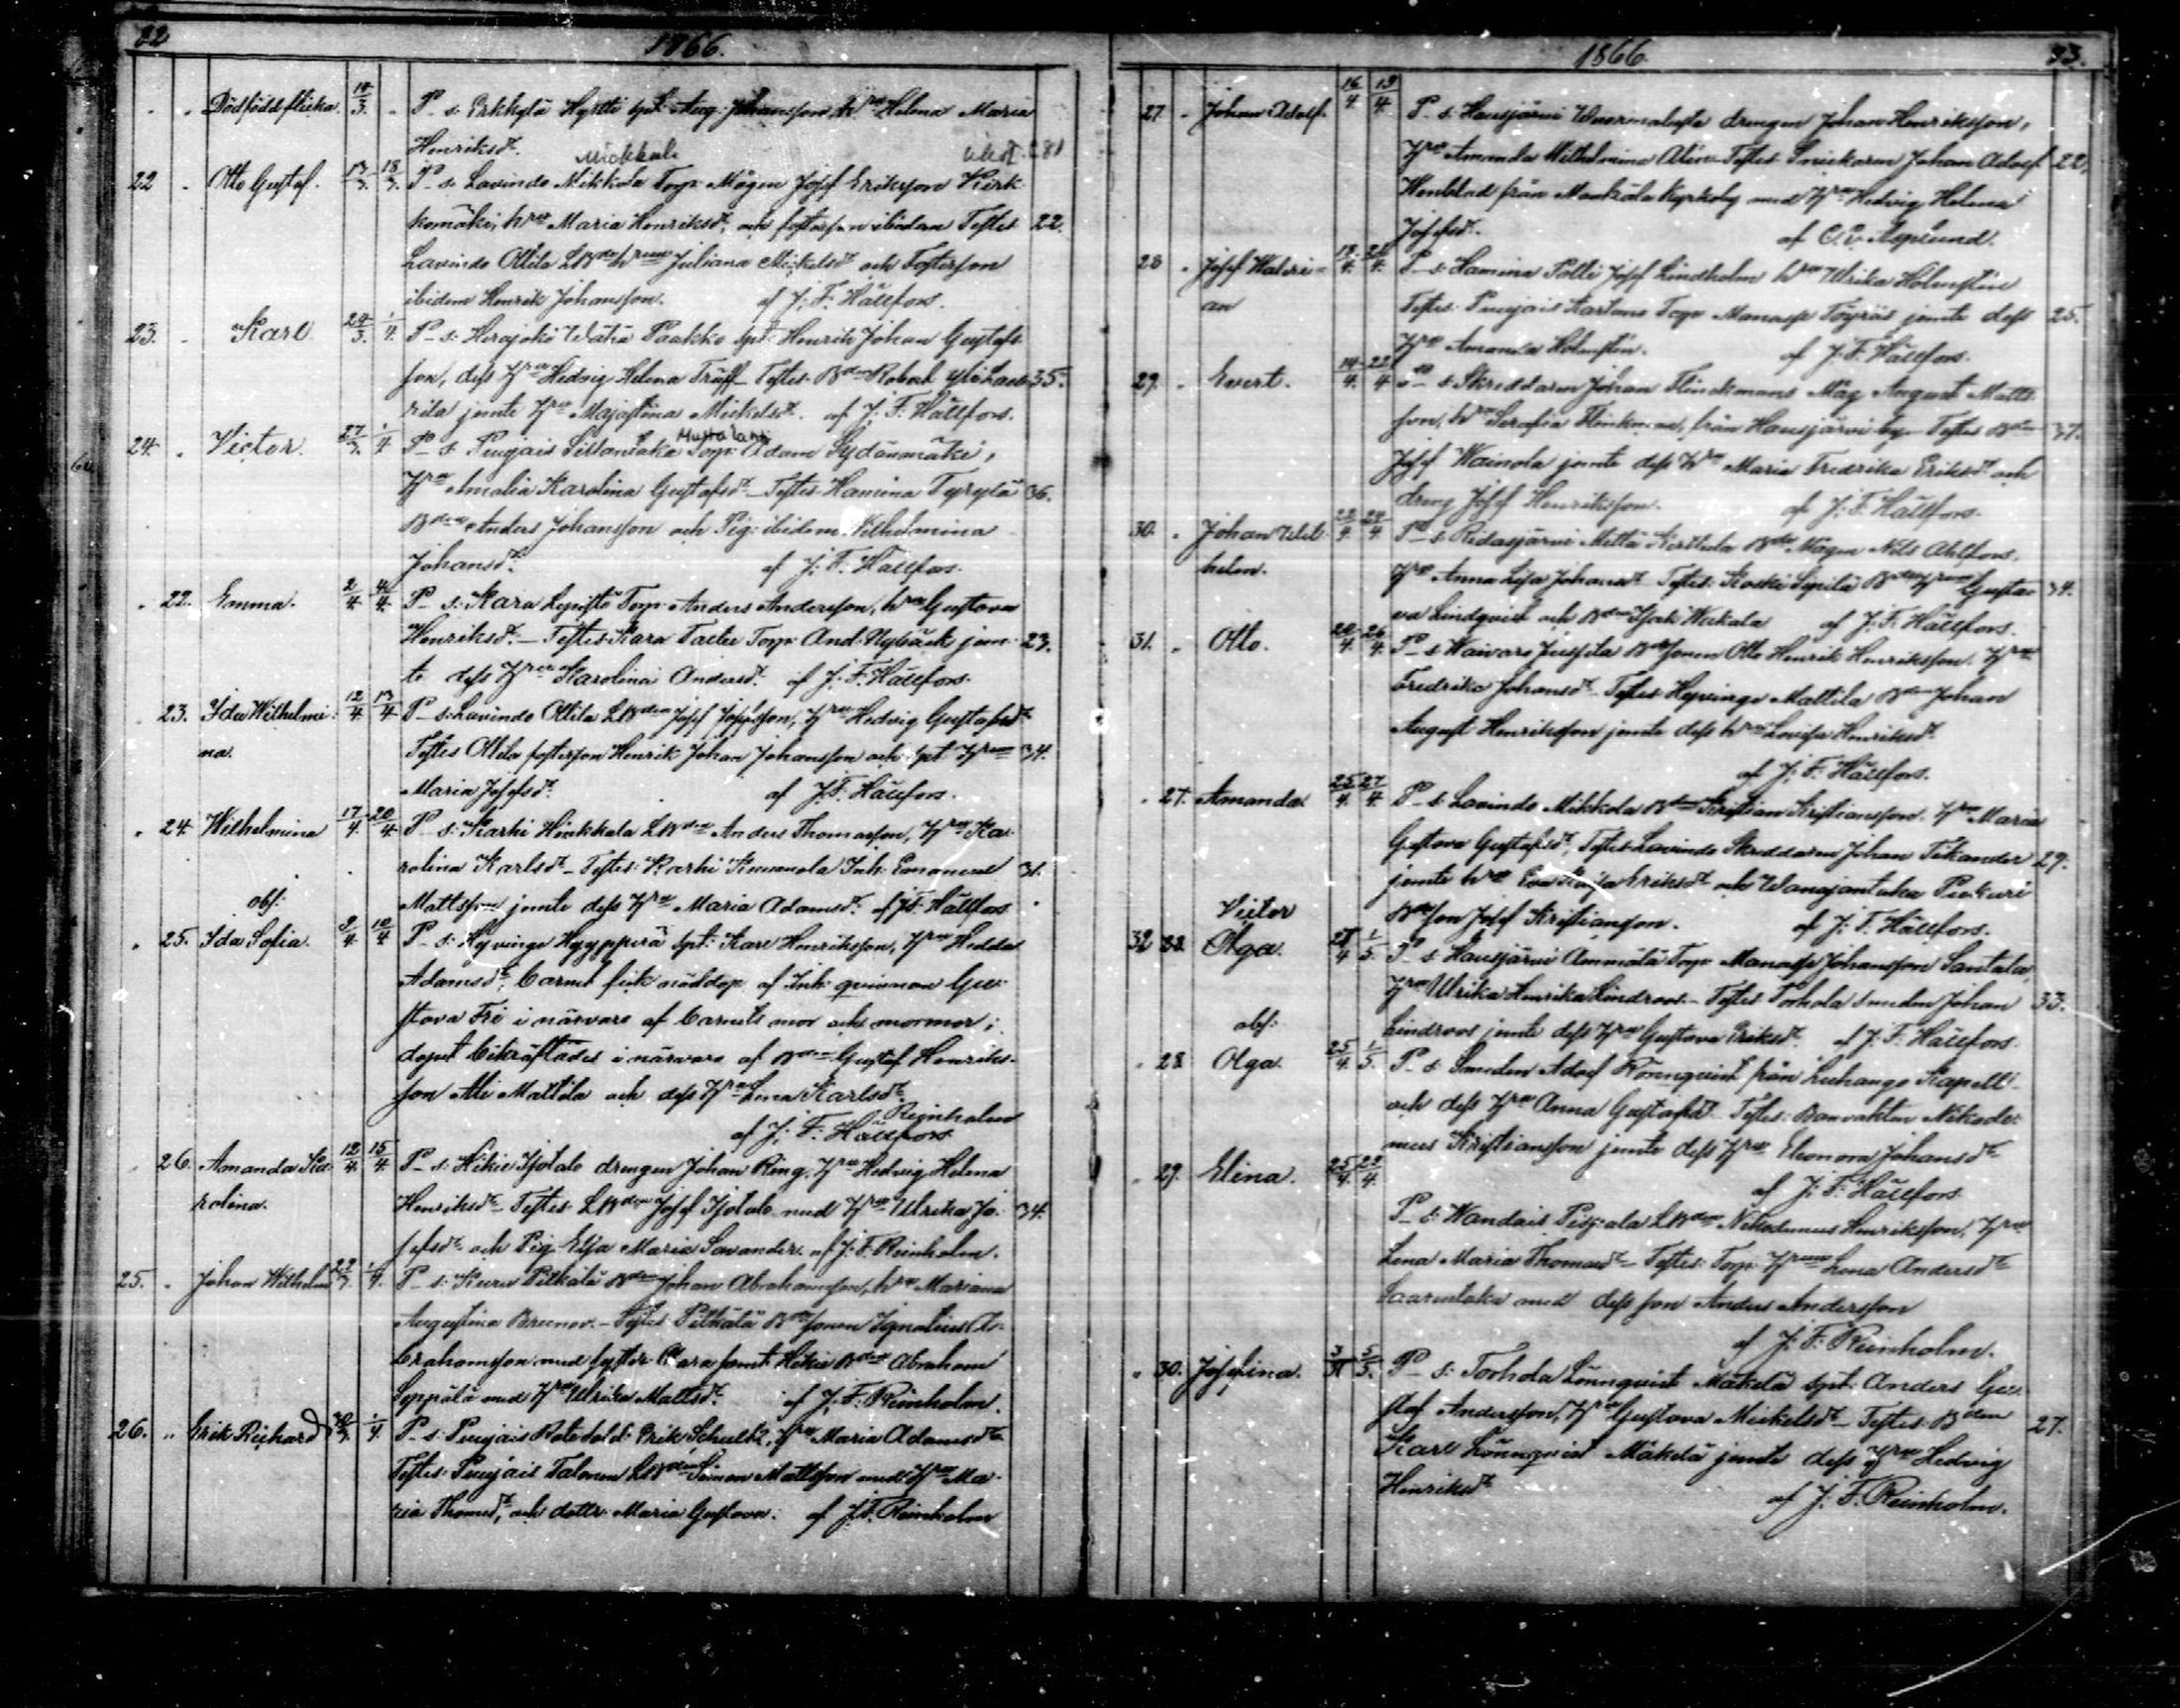 22 1866.
Dödfödd flicka. 14/3 P s: Erkkylä Hyttö spt: Aug: Johansson h Helena Maria
Henriksdr. Mickkola 281
22 Otto Gustaf. 13/3 18/3 P s: Lavindo Mikkola Torp: Mågen Josef Eriksson Kirk
komäki, hru Maria Henriksdr, och ibidem Testes 22.
Lavindo Ollila LBde hrun Juliana Mickelsdr och Fosterson
ibidem Henrik Johansson. af J: F: Hällfors.
23. Karl 24/3 1/4 P s: Herajoki Wähä Paakko spt: Henrik Johan Gustafs
son, dess Hru Hedvig Helena Träff Testes: Bden Robert 35.
rila jemte Hru Majastina Mickelsdr. af J: F: Hällfors.
Mustalampi
24. Victor. 27/3 1/4 P s: Puujais Sillanpää Torp: Adam Sydänmäki,
Hru Amalia Karolina Gustafsdr Testes: Hamina Tyrylä 36.
Bden Anders Johansson och Pig: ibidem Wilhelmina
Johansdr. af J: F: Hällfors.
22. Emma. 2/4 4/4 P s: Kara Lepistö Torp: Anders Andersson, hru Gustava
Henriksdr. Testes: Kara Torp: And: Nybäck jem 23.
te dess Hru Karolina Andersdr. af J: F: Hällfors.
23. Ida Wilhelmi: 12/4 13/4 P s: Lavindo Ollila LBden Josef Josefsson, Hru Hedvig Gustafsdr
na. Testes Ollila fosterson Henrik Johan Johansson och Spt Hrun 34.
Maria Josefsdr. af J: F: Hällfors.
24 Wilhelmina 17/4 20/4 P s: Karhi Hinkkala LBden Anders Thomasson, Hru Ka
rolina Karlsdr Testes: Karhi Inh: Emanuel 31.
obs: Mattsson jemte dess Hru Maria Adamsdr. af J: F: Hällfors
25. Ida Sofia. 9/4 10/4 P s: Hyvinge Hyyppärä spt: Karl Henriksson, Hru Hedda
Adamsdr, barnet fick nöddop af Inh: qvinnan Gu
stava Fri i närvaro af barnets mor och mormor;
dopet bekräftades i närvaro af Bden Gustaf Henriks
son Ali Mattila och dess Hru Lena Karlsdr.
Reinholm
af J: F: Hällfors
26. Amanda Ka 12/4 15/4 P s: Hikie Isotalo drengen Johan Ring, Hru Hedvig Helena
rolina. Henriksdr Testes: LBden Josef Isotalo med Hru Ulrika Jo 34.
sefsdr och Pig: Elsa Maria Savander. af J: F: Reinholm.
25. Johan Wilhelm 22/3 1/4 P s: Kuru Pitkälä Bden Johan Abrahamsson, hru Mariana
Augustina Brunov. Testes: Pitkälä Bdesonen Ignatius A
brahamsson med syster Clara samt Hikie Bden Abraham
Seppälä med Hru Ulrika Mattsdr. af J: F: Reinholm.
26. Erik Richard 30/3 1/4 P s: Puujais Rote sold: Erik Schultz, Hru Maria Adamsdr
Testes: Puujais Talonen LBden Simon Mattsson med Hru Ma
ria Thomsdr, och dottr Maria Gustava: af J: F: Reinholm
1866 23.
27. Johan Adolf. 16/4 19/4 P s: Hausjärvi drengen Johan Henriksson,
Hru Amanda Wilhelmina Testes: Snickaren Johan Adolf 22.
Wenblad från Monkala kyrkoby med Hru Hedvig Helena
Josefsdr. af C: v: Asplund.
28 Josef Waleri 18/4 21/4 P s: Hamina Polli Josef Lindholm hru Ulrika Holmstén
an Testes: Puujais Kartano Torp: Manasse Töyräs jemte dess 25.
Hru Amanda Holmstén. af J: F: Hällfors.
29. Evert. 14/4 22/4 P s: Skreddaren Johan Flinckmans Måg August Matts
son, hru Serafia Flinkman, från Hausjärvi by Testes Bden 37.
Josef Wainola jemte dess Hru Maria Fredrika Eriksdr och
dreng Josef Henriksson. af J: F: Hällfors.
30. Johan Wil 22/4 24/4 P s: Ridasjärvi Mittä Bde Mågen Nils Ahlfors.
helm. Hru Anna Lisa Johansdr Testes: Koski Sepilä Bde Hrun Gusta 34.
va Lindqvist och Bden Isak Wekala af J: F: Hällfors.
31. Otto. 20/4 26/4 P s: Waivaro Bdesonen Otto Henrik Henriksson. Hru
Fredrika Johansdr Testes Hyvinge Mattila Bden Johan
August Henriksson jemte dess hru Lovisa Henriksdr
af J: F: Hällfors.
27. Amanda. 25/4 27/4 P s: Lavindo Mikkola Bden Kristian Kristiansson. Hru Maria
Gustava Gustafsdr, Testes: Lavindo Skreddaren Johan Tikander 29.
jemte hru Eva Kajsa Eriksdr och Wanajantaka Puukuri
Victor Bdeson Josef Kristiansson. af J: F: Hällfors.
32 22. Olga. 28/4 1/5. P s: Hausjärvi Ammätä Torp: Manasse Johansson Santala,
Hru Ulrika Henrika Lindroos. Testes: Torhola smeden Johan 33.
obs: Lindroos jemte dess Hru Gustava Eriksdr. af J: F: Hällfors
28 Olga. 25/4 1/5. P s: Smeden Adolf Rönnqvist från Luhango Kapell
och dess Hru Anna Gustafsdr. Testes: Banvakten Nikode
mus Kristiansson jemte dess Hru Eleonora Johansdr
af J: F: Hällfors
29. Elina. 25/4 29/4 P s: Wandais Pisjala LBden Nikodemus Henriksson, Hru
Lena Maria Thomasdr Testes: Torp: Hrun Lena Andersdr
Saarentaka med dess son Anders Andersson
af J: F: Reinholm.
30. Josefina. 3/5 5/5. P s: Torhola Lönnqvist Mäkelä spt: Anders Gu
staf Andersson, Hru Gustava Mickelsdr Testes: Bden 27.
Karl Lönnqvist Mäkelä jemte dess Hru Hedvig
Henriksdr af J: F: Reinholm.